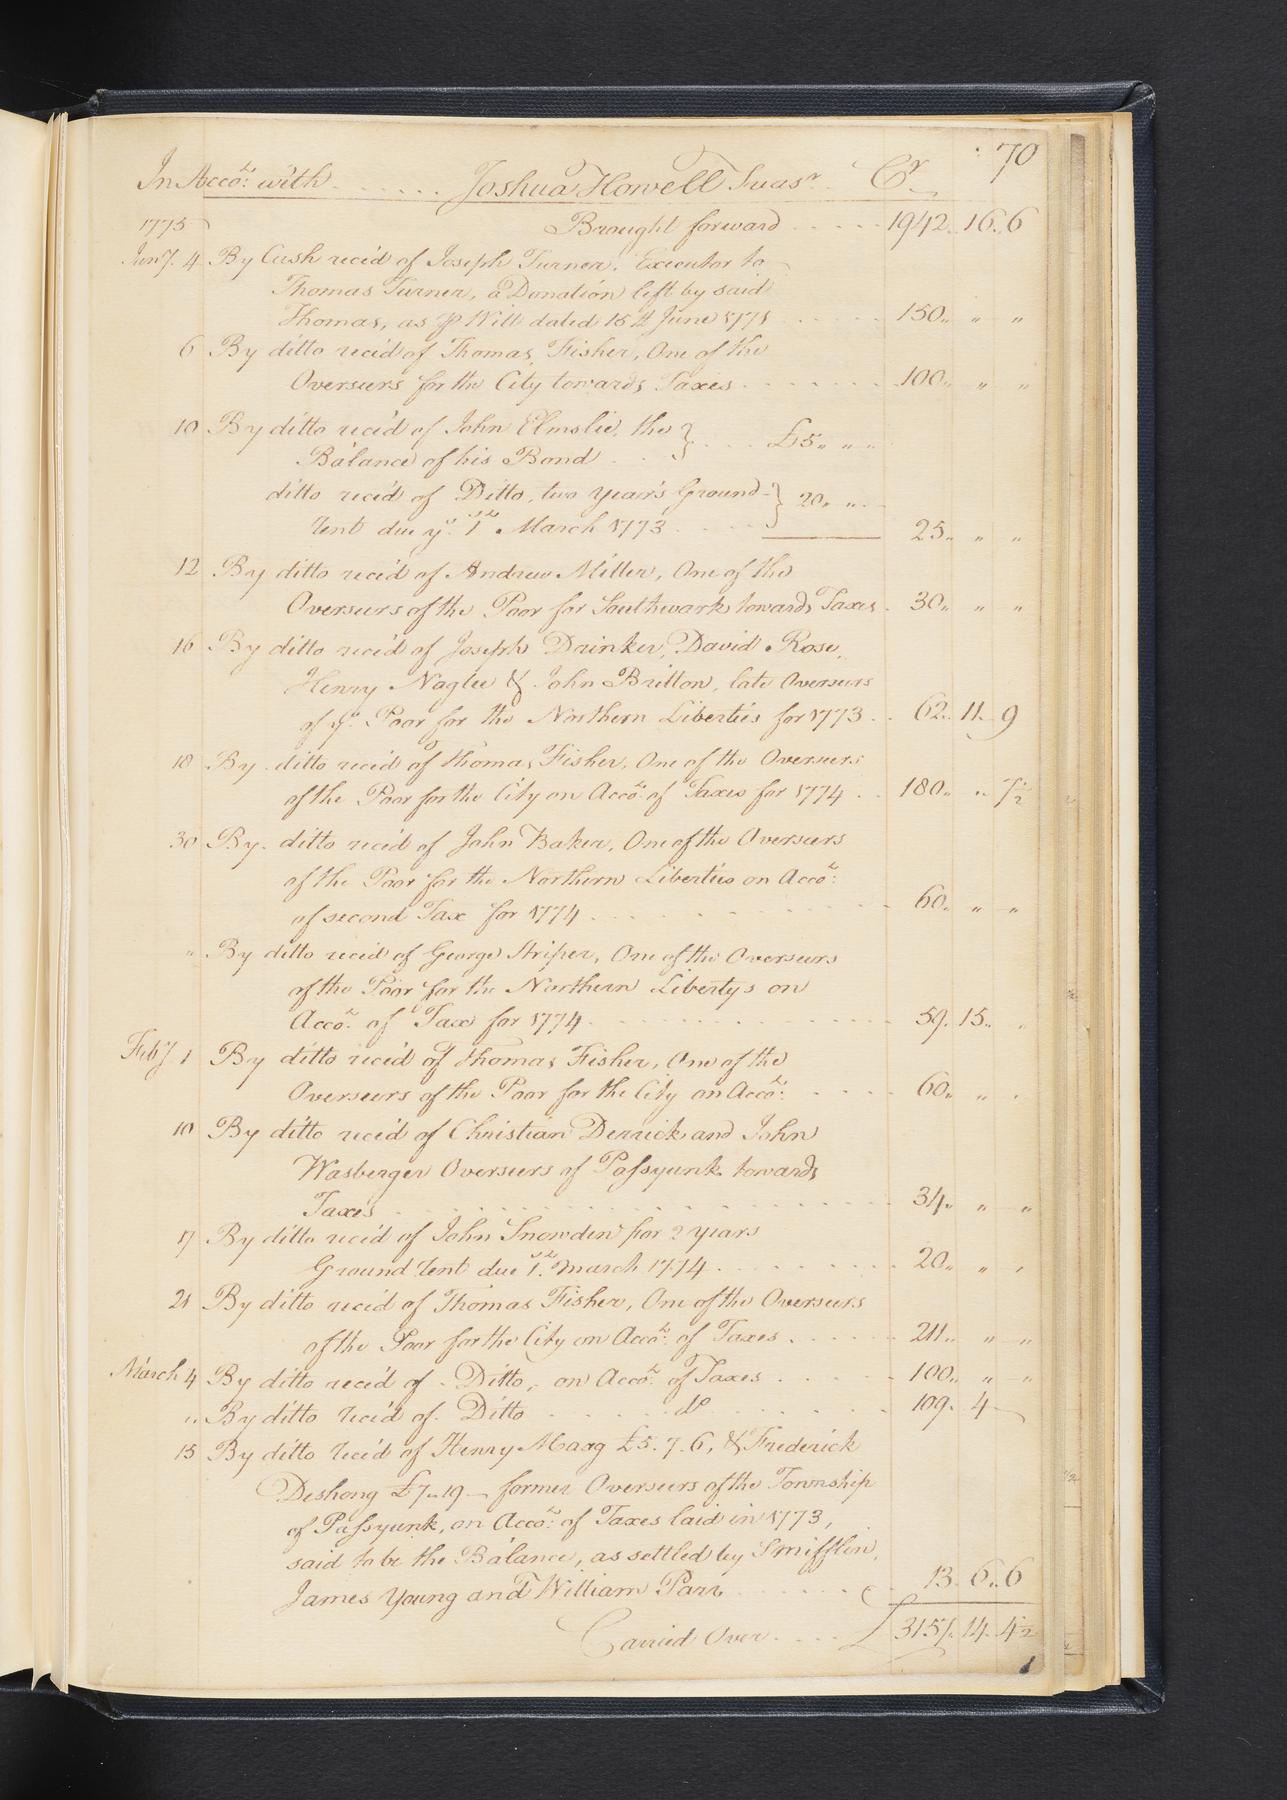 70
In Acco.t with ...... Joshua Howell Treasr. Cr.
1775 Brought forward ..... 1942.. 16.. 6
Jany. 4 By Cash reced of Joseph Turner, Executor to
Thomas Turner, a Donation left by said
Thomas, as p Will dated 15th June 1771 ...... 150.. " "
6 By ditto reced of Thomas Fisher, One of the
Overseers for the City towards Taxes ....... 100.. " "
10 By ditto reced of John Elmslie, the } .... £5.. " "
Balance of his Bond ...
ditto reced of Ditto, two year's Ground- } 20.. "
Rent due ye. 1st March 1773 ..... 25.. " "
12 By ditto reced of Andrew Miller, One of the
Overseers of the Poor for Southwark towards Taxes . 30.. " "
16 By ditto reced of Joseph Drinker, David Rose,
Henry Naglee & John Britton, late Overseers
of ye. Poor for the Northern Liberties for 1773 .. 62.. 11.. 9
18 By ditto reced of Thomas Fisher, One of the Overseers
of the Poor for the City on Acco.t of Taxes for 1774 .. 180.. " 7½
30 By ditto reced of John Baker, One of the Overseers
of the Poor for the Northern Liberties on Acco.t
of second Tax for 1774 ........... 60.. " "
" By ditto reced of George Striper, One of the Overseers
of the Poor for the Northern Libertys on
Acco.t of Tax for 1774 ........... 59. 15.. "
Feby. 1 By ditto reced of Thomas Fisher, One of the
Overseers of the Poor for the City on Acco.t .... 60.. " "
10 By ditto reced of Christian Derrick and John
Wasberger Overseers of Passyunk towards
Taxes .................. 34.. " "
17 By ditto reced of John Snowden for 2 years
Ground Rent due 1st March 1774 ........ 20.. " "
21 By ditto reced of Thomas Fisher, One of the Overseers
of the Poor for the City on Acco.t of Taxes ...... 211.. " "
March 4 By ditto reced of Ditto, on Acco.t of Taxes ...... 100.. " "
" By ditto Reced of Ditto ...... do ....... 109. 4 —
15 By ditto Reced of Henry Maag £5. 7. 6, & Frederick
Deshong £7..19 — former Overseers of the Township
of Passyunk, on Acco.t of Taxes laid in 1773,
said to be the Balance, as settled by S Mifflin,
James Young and William Parr ...... 13. 6.. 6
Carried Over .... £ 3157. 14. 4½